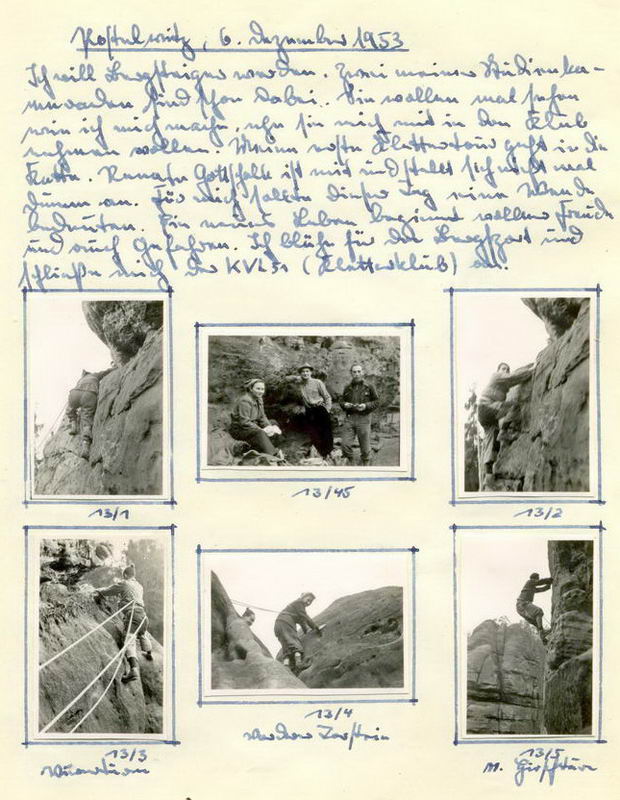 Postelwitz, 6. Dezember 1953
Ich will Bergsteiger werden. Zwei meiner Studienka-
meraden sind schon dabei. Sie wollen mal sehen
wie ich mich mache, ehe sie mich mit in den Klub
nehmen wollen. Meine erste Klettertour geht in die
Renate Gottschalk ist mit und stellt sich nicht mal
dumm an. Für mich sollte dieser Tag eine Wende
bedeuten. Ein neues Leben beginnt voller Freude
und auch Gefahren. Ich blühe für den Bergsport und
schließe mich der KVL 50 (Kletterklub) an.
13/1
13/45
13/2
13/3
13/4
13/5